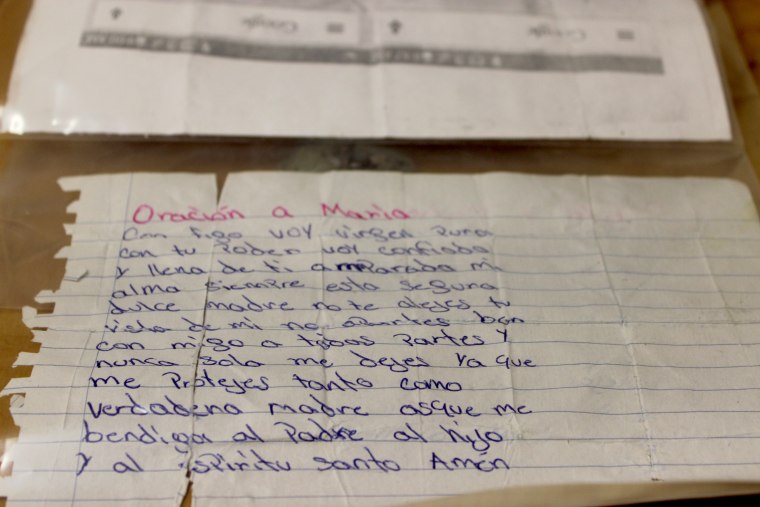 Google
Google
Oración a Maria
Con tigo voy virgen pura
con tu Poder voy confiaba
y llena de ti amParaba mi
alma siemPre esta segura
dulce madre no te alejes tu
vista de mi no aPartes ben
con migo a todas Partes y
nunca sola me dejes ya que
me Protejes tanto como
verdabera madre asque me
bendiga al Padre al hijo
y al espiritu santo Amén